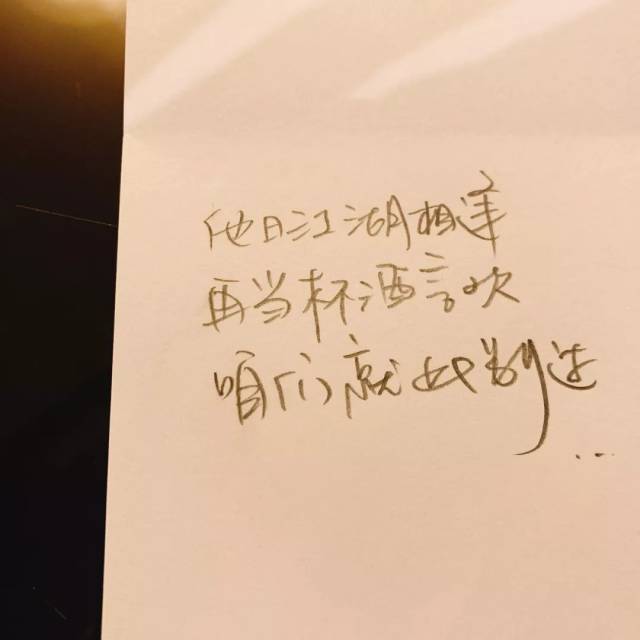 他日江湖相逢
再当杯酒言欢
咱们就此别过
...